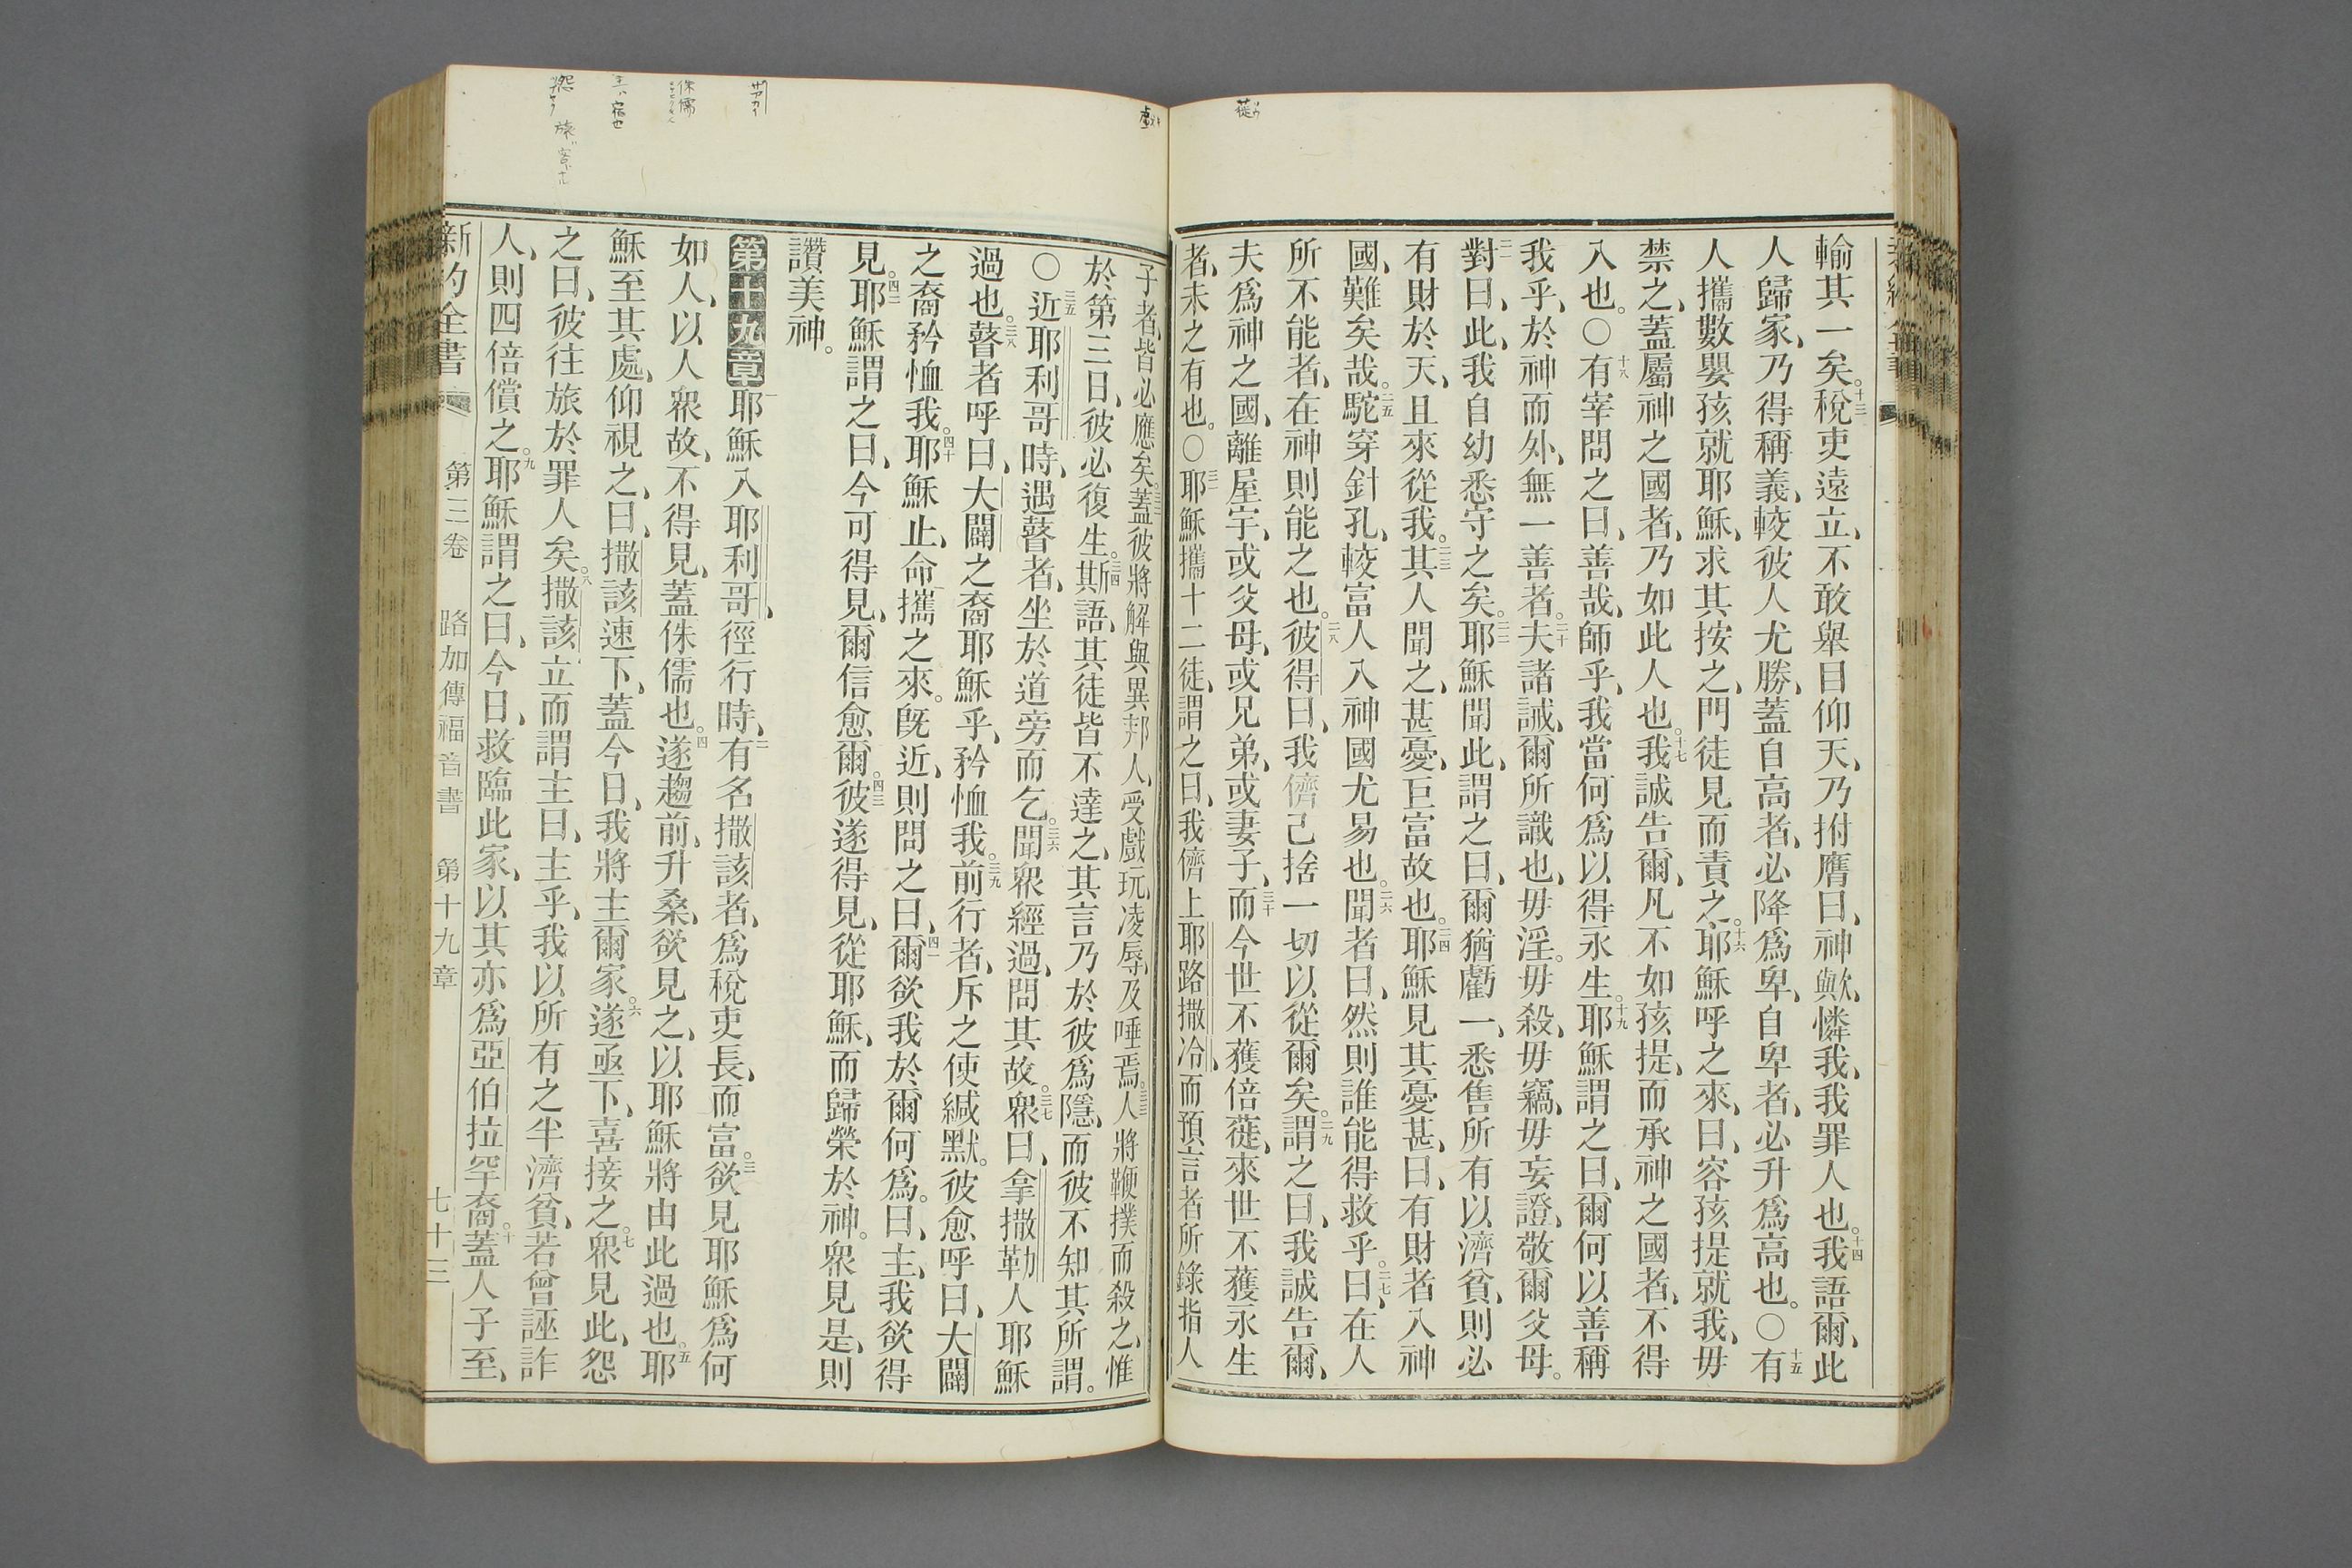 輸其一矣。十三稅吏遠立、不敢舉目仰天、乃拊膺曰、神歟、憐我、我罪人也。十四我語爾、此
人歸家、乃得稱義、較彼人尤勝、蓋自高者、必降爲卑、自卑者、必升爲高也。〇十五有
人攜數嬰孩就耶穌、求其按之、門徒見而責之。十六耶穌呼之來、曰、容孩提就我、毋
禁之、蓋屬神之國者、乃如此人也。十七我誠告爾、凡不如孩提、而承神之國者、不得
入也。〇十八有宰問之曰、善哉、師乎、我當何爲以得永生。十九耶穌謂之曰、爾何以善稱
我乎、於神而外、無一善者。二十夫諸誡、爾所識也、毋淫。毋殺、毋竊、毋妄證、敬爾父母。
二一對曰、此、我自幼悉守之矣。二二耶穌聞此、謂之曰、爾猶虧一、悉售所有以濟貧、則必
有財於天、且來從我。二三其人聞之、甚憂、巨富故也。二四耶穌見其憂甚、曰、有財者入神
國、難矣哉。二五駝穿針孔、較富人入神國尤易也。二六聞者曰、然則誰能得救乎。二七曰、在人
所不能者、在神則能之也。二八彼得曰、我儕己捨一切以從爾矣。二九謂之曰、我誠告爾、
夫爲神之國、離屋宇、或父母、或兄弟、或妻子、三十而今世不獲倍蓰、來世不獲永生
者、未之有也。〇三一耶穌攜十二徒、謂之曰、我儕上耶路撒冷、而預言者所錄指人
子者、皆必應矣、三二蓋彼將解與異邦人、受戲玩、凌辱、及唾焉。三三人將鞭撲而殺之、惟
於第三日、彼必復生。三四斯語、其徒皆不達之、其言乃於彼爲隱、而彼不知其所謂。
〇三五近耶利哥時、遇瞽者、坐於道旁而乞。三六聞衆經過、問其故。三七衆曰、拿撒勒人耶穌
過也。三八瞽者呼曰、大闢之裔耶穌乎、矜恤我。三九前行者、斥之使緘默。彼愈呼曰、大闢
之裔、矜恤我。四十耶穌止、命攜之來。旣近、則問之曰、四一爾欲我於爾何爲。曰、主、我欲得
見。四二耶穌謂之曰、今可得見、爾信愈爾。四三彼遂得見、從耶穌、而歸榮於神。衆見是、則
讚美神。
第十九章 一耶穌入耶利哥、徑行時、二有名撒該者、爲稅吏長、而富。三欲見耶穌爲何
如人、以人衆故、不得見、蓋侏儒也。四遂趨前、升桑、欲見之、以耶穌將由此過也。五耶
穌至其處、仰視之、曰、撒該速下、蓋今日、我將主爾家。六遂亟下、喜接之。七衆見此、怨
之曰、彼往旅於罪人矣。八撒該立而謂主曰、主乎、我以所有之半濟貧、若曾誣詐
人、則四倍償之。九耶穌謂之曰、今日、救臨此家、以其亦爲亞伯拉罕裔。十蓋人子至、
新約全書 第三卷 路加傳福音書 第十九章 七十三